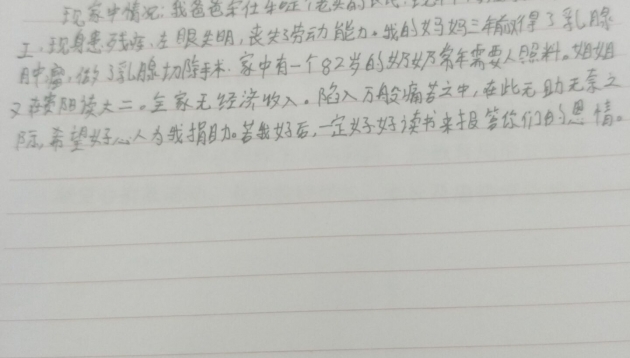 现家中情况:我爸爸
工,现身患残疾,左眼失明,丧失了劳动能力。我的妈妈三年前得了乳腺
肿瘤,做了乳腺切除手术.家中有一个82岁的奶奶常年需要人照料。姐姐
又在贵阳读大二。全家无经济收入。陷入万般痛苦之中,在此无助无奈之
际,希望好心人为我捐助。若我好后,一定好好读书来报答你们的恩情。